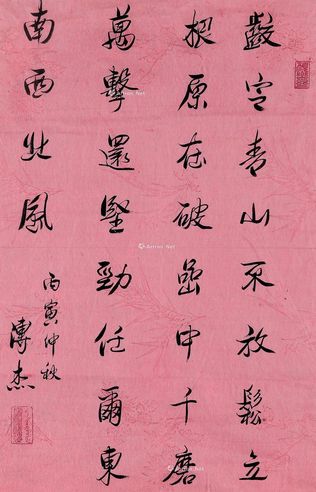 齩定青山不放鬆立
根原在破嵒中千磨
萬擊還堅勁任爾東
南西北風
丙寅仲秋
溥杰
Artron.Net